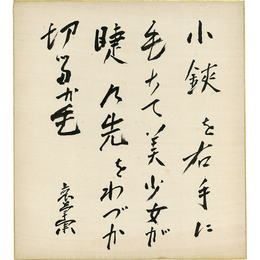 小鋏を右手に
もちて美少女が
睫乃先をわづか
切るか毛